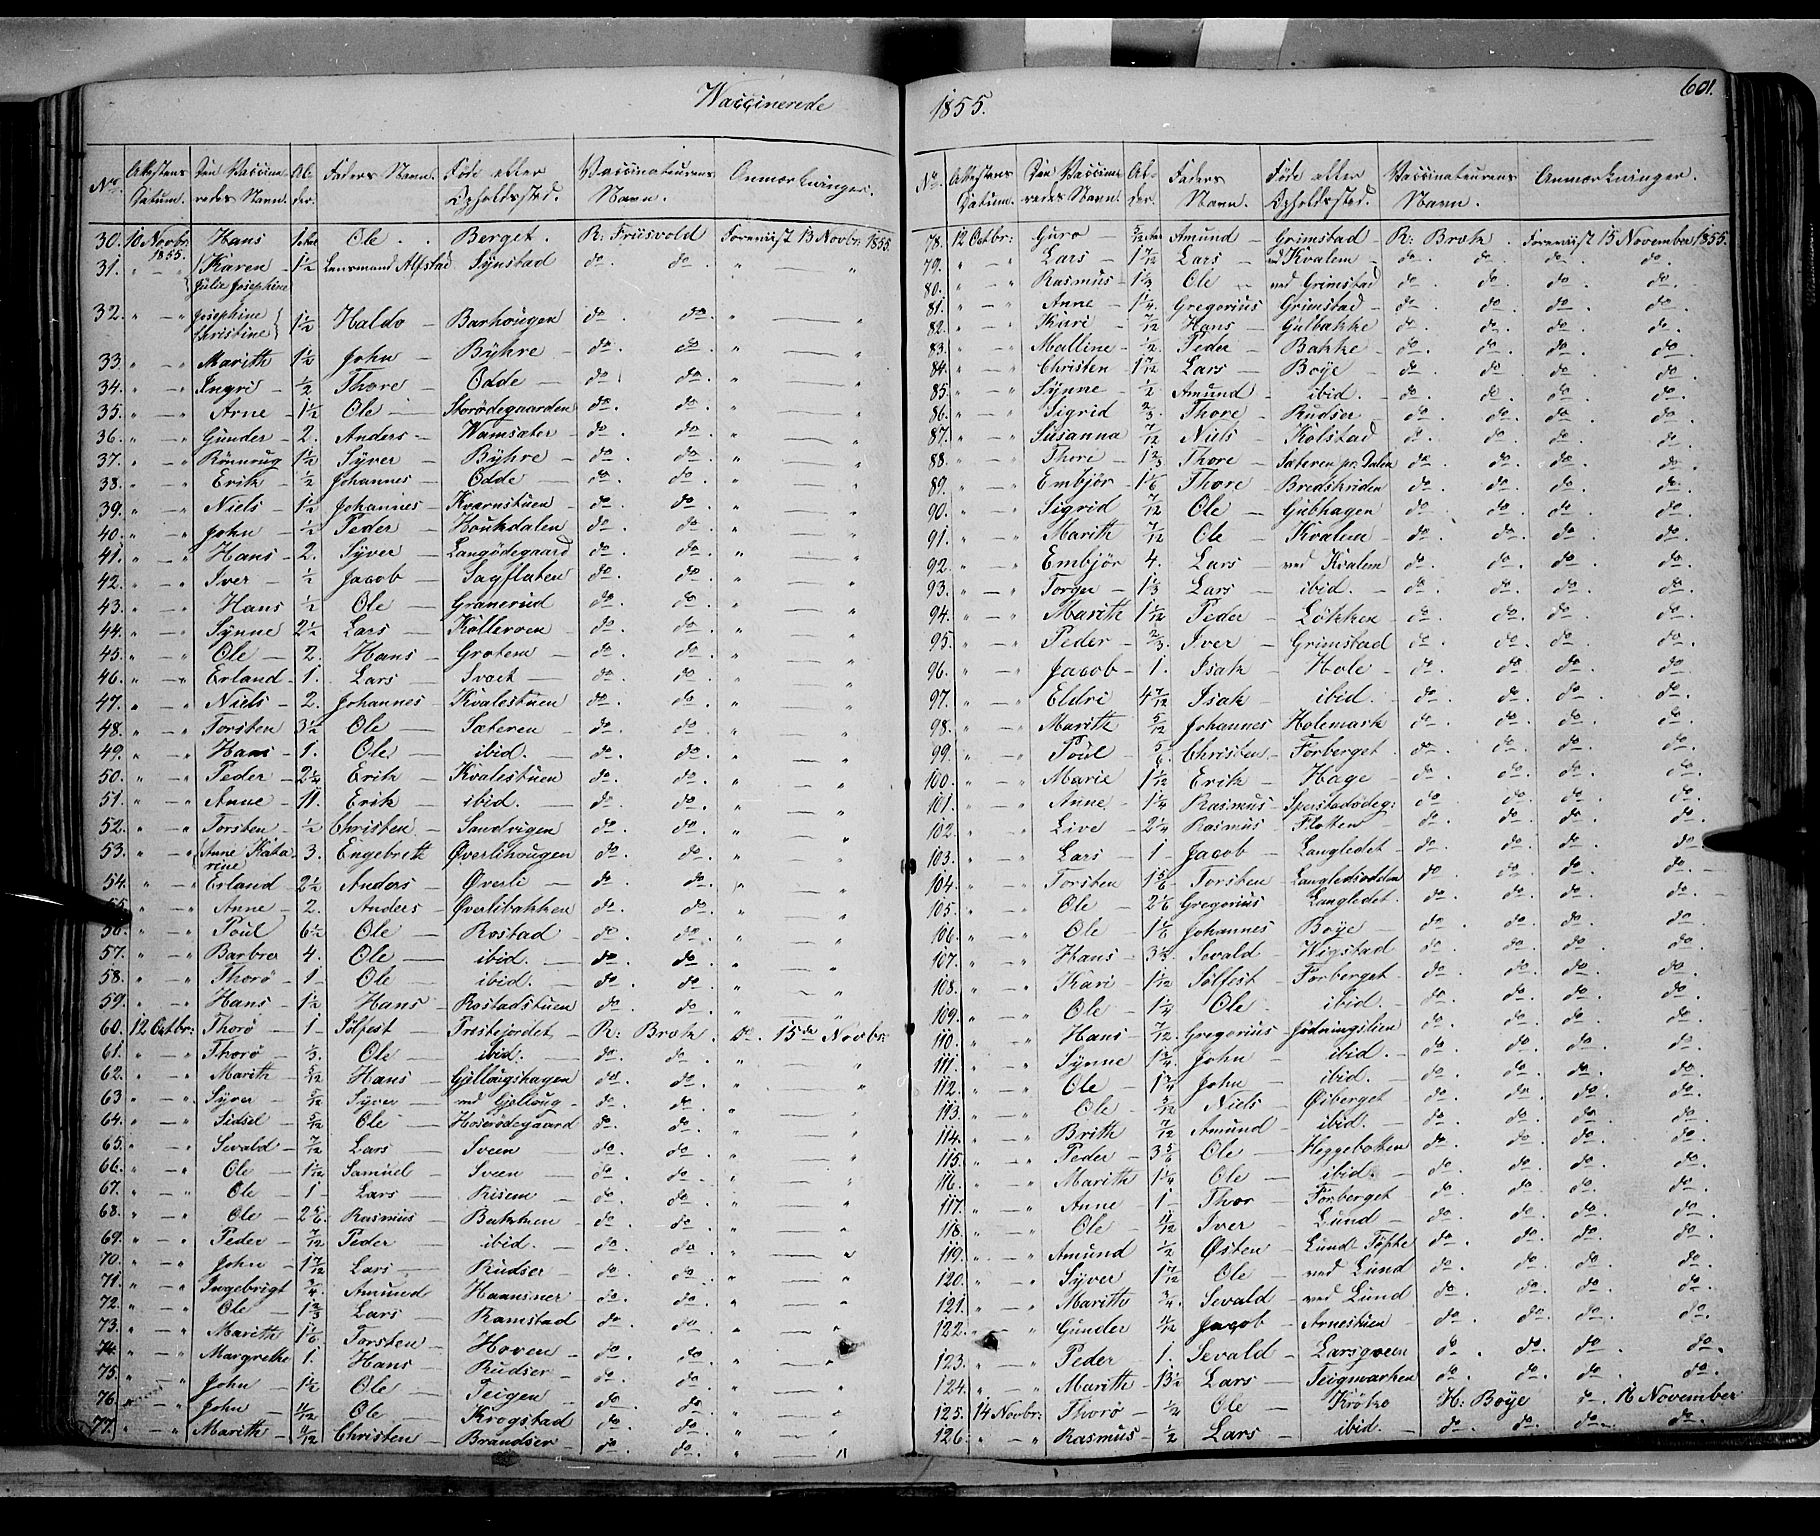 Vaccinerede
No Attestens Datum. Den Vaccineredes Navn. Alder. Faders Navn. Føde eller Opholdssted. Vaccinateurens Navn. Anmærkninger.
30. 10 Novbr: 1855. Hans 1 Ole Berget. R: Friisvold Foreviist 13 Novbr: 1855
31. " — " Karen Julia Josephine 1½ Lensmand Alfstad Synstad do. do. " — "
32. " — " Josephine Christine 1½ Haldo — Barhougen do. do. " — "
33. " — " Marith 1½ John — Byhre — do. do. " — "
34. " — " Ingri — ½ Thore — Odde — do. do. " — "
35. " — " Arne 1½ Ole — Storødegaarden do. do. " — "
36. " — " Gunder 2. Anders — Wamsæter — do. do. " — "
37. " — " Rønnaug 1½ Syver — Byhre — do. do. " — "
38. " — " Erik — ½ Johannes — Odde — do. do. " — "
39. " — " Niels — 1½ Johannes — Kvarnstuen do. do. " — "
40. " — " John — ½ Peder — Houkdalen do. do. " — "
41. " — " Hans — 2. Syver — Langødegaard do. do. " — "
42. " — " Iver — ½ Jacob — Sagflaten do. do. " — "
43. " — " Hans ½ Ole — Granerud do. do. " — "
44. " — " Synne 2½ Lars — Kolleroen — do. do. " — "
45. " — " Ole — 2. Hans — Grotem — do. do. " — "
46. " — " Erland — 1. Lars — do. do. " — "
47. " — " Niels — 2. Johannes — Kvalestuen do. do. " — "
48. " — " Torsten 3½ Ole — Sæteren — do. do. " — "
49. " — " Hans — 1. Ole — ibid. — do. do. " — "
50. " — " Peder — 2¼ Erik — Kvalestuen do. do. " — "
51. " — " Anne — 11. Erik — ibid. — do. do. " — "
52. " — " Torsten — ½ Christen — Sandvigen do. do. " — "
53. " — " Anne Katarine 3. Engebrith Øverlihougen do. do. " — "
54. " — " Erland 2½ Anders — Øverli — do. do. " — "
55. " — " Anne — 2. Anders — Øverlibakken do. do. " — "
56. " — " Poul 6½ Ole — Rostad — do. do. " — "
57. " — " Barbro 4. Ole — ibid. — do. do. " — "
58. " — " Thorø — 1 — Ole — ibid. — do. do. " — "
59. " — " Hans — 1½ Hans — Rostadstuen do. do. " — "
60. 12 Octbr: Thorø — 1 — Sølfest — R: Brok. do. 15de Novbr:
61. " — " Thorø — ⅓. Ole — ibid. — do. do. " — "
62. " — " Marith — 5/12 Hans — Gjellougshagen do. do. " — "
63. " — " Syver — 5/12 Syver — ved Gjelloug — do. do. " — "
64. " — " Sidsel — 5/12 Ole — do. do. " — "
65. " — " Sevald — 7/12 Lars — Sveen — do. do. " — "
66. " — " Ole — 1 1/12 Samuel — Sveen — do. do. " — "
67. " — " Ole — 1 — Lars — Risem — do. do. " — "
68. " — " Ole — 2 5/6 Rasmus — Bakken — do. do. " — "
69. " — " Peder — 7/12 Peder — ibid. — do. do. " — "
70. " — " John — 1 7/12 Lars — Rudser — do. do. " — "
71. " — " Ingebrigt ¾ Amund — Haansner — do. do. " — "
72. " — " Ole — 1⅔ Lars — Ramstad do. do. " — "
73. " — " Marith — 1⅙ Torsten — Hoven — do. do. " — "
74. " — " Margrethe 1. Hans — Rudser — do. do. " — "
75. " — " John — 1½ Ole — Teigen — do. do. " — "
76. " — " John — 11/12 Ole — Krogstad — do. do. " — "
77. " — " Marith — Christen — Brandser — do. do. " — "
1855.
601.
No Attestens Datum. Den Vaccineredes Navn. Alder. Faders Navn. Føde eller Opholdssted. Vaccinateurens Navn. Anmærkninger.
78. 12 Octbr: Guro — Amund — Grimstad — R: Brok. Foreviist 15 November 1855.
79. " — " Lars — Lars — ved Kvalem — do. do. do. do.
80. " — " Rasmus — 1⅓ Ole — ved Grimstad do. do. do. do.
81. " — " Anne — 1¼ Gregorius Grimstad — do. do. do. do.
82. " — " Kari — 7/12 Hans — Gulbakke do. do. do. do.
83. " — " Malline — ½ Peder — Bakke — do. do. do. do.
84. " — " Christen 1 7/12 Lars — Boye — do. do. do. do.
85. " — " Synne — ½ Amund — ibid. — do. do. do. do.
86. " — " Sigrid ⅔ Thore — Rudser — do. do. do. do.
87. " — " Susanna 7/12 Niels — Kolstad — do. do. do. do.
88. " — " Thore — 1⅔ Thore — Sæteren pr. Dalen do. do. do. do.
89. " — " Embjør — 1⅙ Thore — Bredskriden do. do. do. do.
90. " — " Sigrid 7/12 Ole — Gubhagen do. do. do. do.
91. " — " Marith 7/12 Ole — Kvalem — do. do. do. do.
92. " — " Embjør 4. Lars — ved Kvalem do. do. do. do.
93. " — " Torger — 1⅓ Lars — ibid. — do. do. do. do.
94. " — " Marith 1 1/12 Peder — Løkken — do. do. do. do.
95. " — " Peder — ⅔. Iver — Grimstad do. do. do. do.
96. " — " Jacob — 1. Isak — Hole — do. do. do. do.
97. " — " Eldri 4 7/12 Isak — ibid — do. do. do. do.
98. " — " Marith 5/12 Johannes Holemark do. do. do. do.
99. " — " Poul — 5/6 Christen — Forberget — do. do. do. do.
100. " — " Marie 1 1/12 Erik — Hage — do. do. do. do.
101. " — " Anne — 1¼ Rasmus — Sperstadødeg: do. do. do. do.
102. " — " Live — 2¼ Rasmus — Flatten — do. do. do. do.
103. " — " Lars — 1 — Jacob — Langledet — do. do. do. do.
104. " — " Torsten 1 5/6 Torsten — Langledsodden do. do. do. do.
105. " — " Ole — 2⅙ Gregorius Langledet — do. do. do. do.
106. " — " Ole — 1⅙ Johannes Boye — do. do. do. do.
107. " — " Hans — Sevald — Wigstad do. do. do. do.
108. " — " Kari — 1 1/12 Sølfest — Forberget — do. do. do. do.
109. " — " Ole — 1¼ Ole — ibid. — do. do. do. do.
110. " — " Hans — 7/12 Gregorius do. do. do. do.
111. " — " Synne — 1¾ John — ibid. — do. do. do. do.
112. " — " Ole — John — ibid. — do. do. do. do.
113. " — " Ole — 5/12 Niels — Øiberget — do. do. do. do.
114. " — " Brith — 7/12 Amund — ibid. — do. do. do. do.
115. " — " Peder 3 5/6 Ole — Heggebotten do. do. do. do.
116. " — " Marith 1¼ Ole — ibid. — do. do. do. do.
117. " — " Anne — 1 — Thor — Forberget do. do. do. do.
118. " — " Ole — 11/12 Iver — Lund — do. do. do. do.
119. " — " Amund ½ Østen — do. do. do. do.
120. " — " Syver — 1 7/12 Ole — ved Lund do. do. do. do.
121. " — " Marith ¾ Sevald — ved Lund — do. do. do. do.
122. " — " Gunder 11/12 Jacob — Arnestuen — do. do. do. do.
123. " — " Peder — 1. Sevald — Larsgveen do. do. do. do.
124. " — " Marith — 13½ Lars — Teigmarken do. do. do. do.
125. 14 Novbr: Thorø — ½ Ole — H: Boye do. 16 November
126. " — " Rasmus — ½ Lars — ibid. — do. do. do. do.